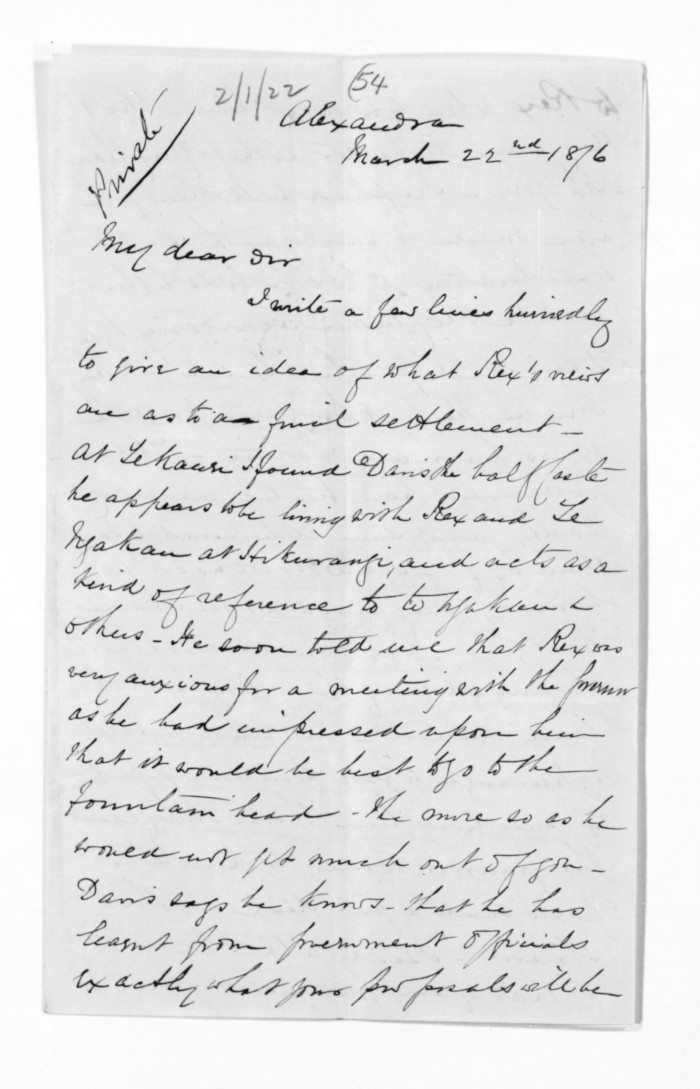 2/1/22 (54
Private
Alexandra
March 22nd 1876
My dear Sir
I write a few lines hurriedly
to give an idea of what Rex's views
are as to a final settlement -
At Te Kauri I found Davis the half Caste
he appears to be living with Rex and Te
Ngakau at Hikurangi, and acts as a
kind of reference to to Ngakau &
others - He soon told me that Rex was
very anxious for a meeting with the
as he had impressed upon him
that it would be best to go to the
fountain head - the more so as he
would not get much out of you -
Davis says he knows - that he has
learnt from government officials
exactly what your proposals will be